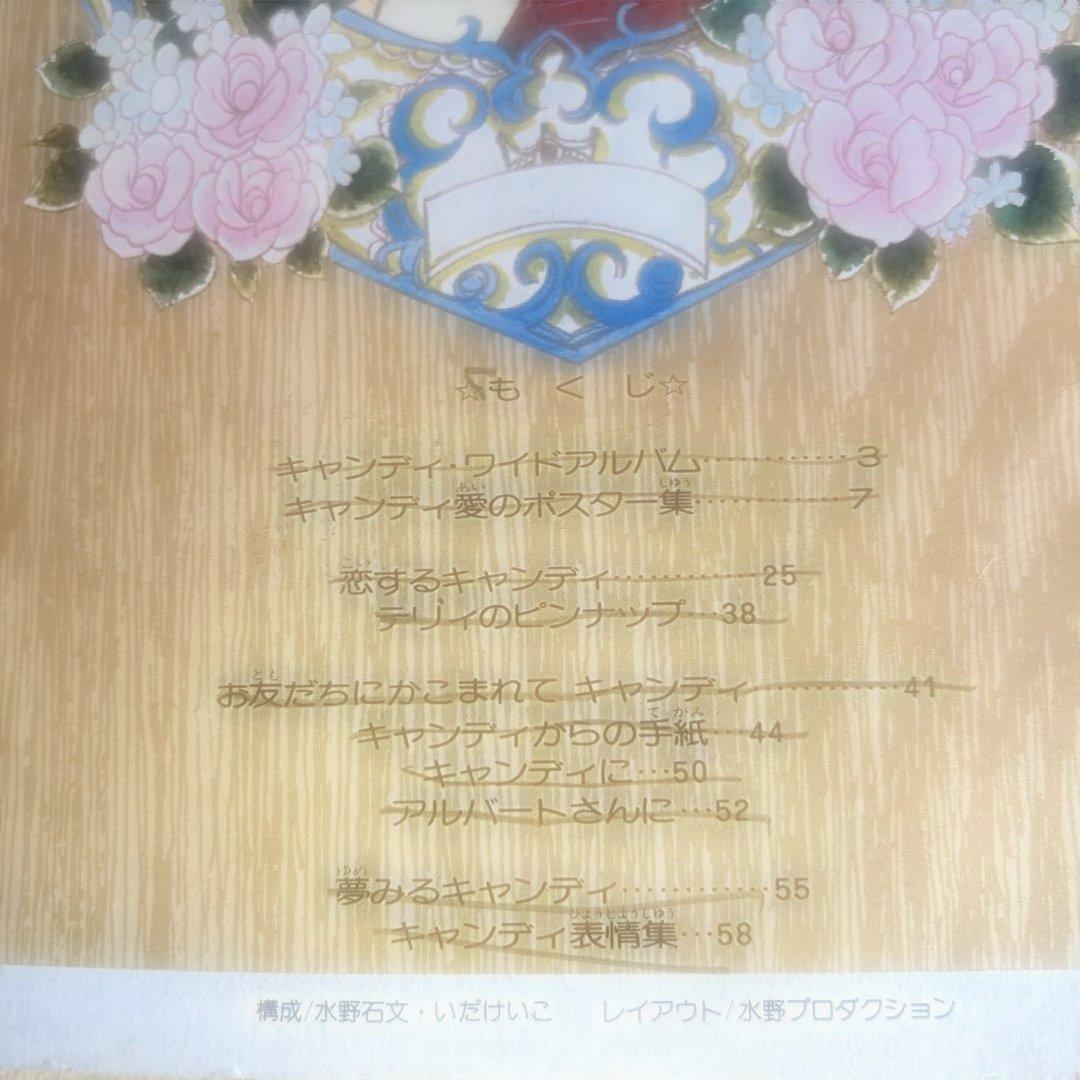 ☆もくじ☆
キャンディ・ワイドアルバム……………3
キャンディ愛のポスター集……………7
恋するキャンディ……………25
テリィのピンナップ…38
お友だちにかこまれて キャンディ……………41
キャンディからの手紙…44
キャンディに…50
アルバートさんに…52
夢みるキャンディ……………55
キャンディ表情集…58
構成/水野石文・いだけいこ　レイアウト/水野プロダクション